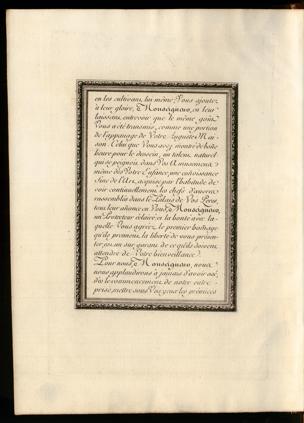 en les cultivant, lui même. Vous ajoutez
à leur gloire, Monseigneur, en leur
laissant entrevoir que le même goût
Vous a été transmis, comme une portion
de l'appanage de Votre Auguste Mai-
son. Celui que Vous avez montré de bonne
heure pour le dessein, un talent naturel
qui se peignoit dans Vos Amusements
même dès Votre Enfance, une connoissance
fine de l'Art, acquise par l'habitude de
voir continuellement les chefs d'œuvres
rassemblés dans le Palais de Vos Peres,
tout leur annonce en Vous, Monseigneur,
un Protecteur éclairé et la bonté avec la-
quelle Vous agréez le premier hommage
qu'ils prennent la liberté de vous présen-
ter, est un sur garant de ce qu'ils doivent
attendre de Votre bienveillance.
Pour nous, Monseigneur, nous
nous applaudirons à jamais d'avoir osé,
dès le commencement de notre entre-
prise, mettre sous Vos yeux les prémices